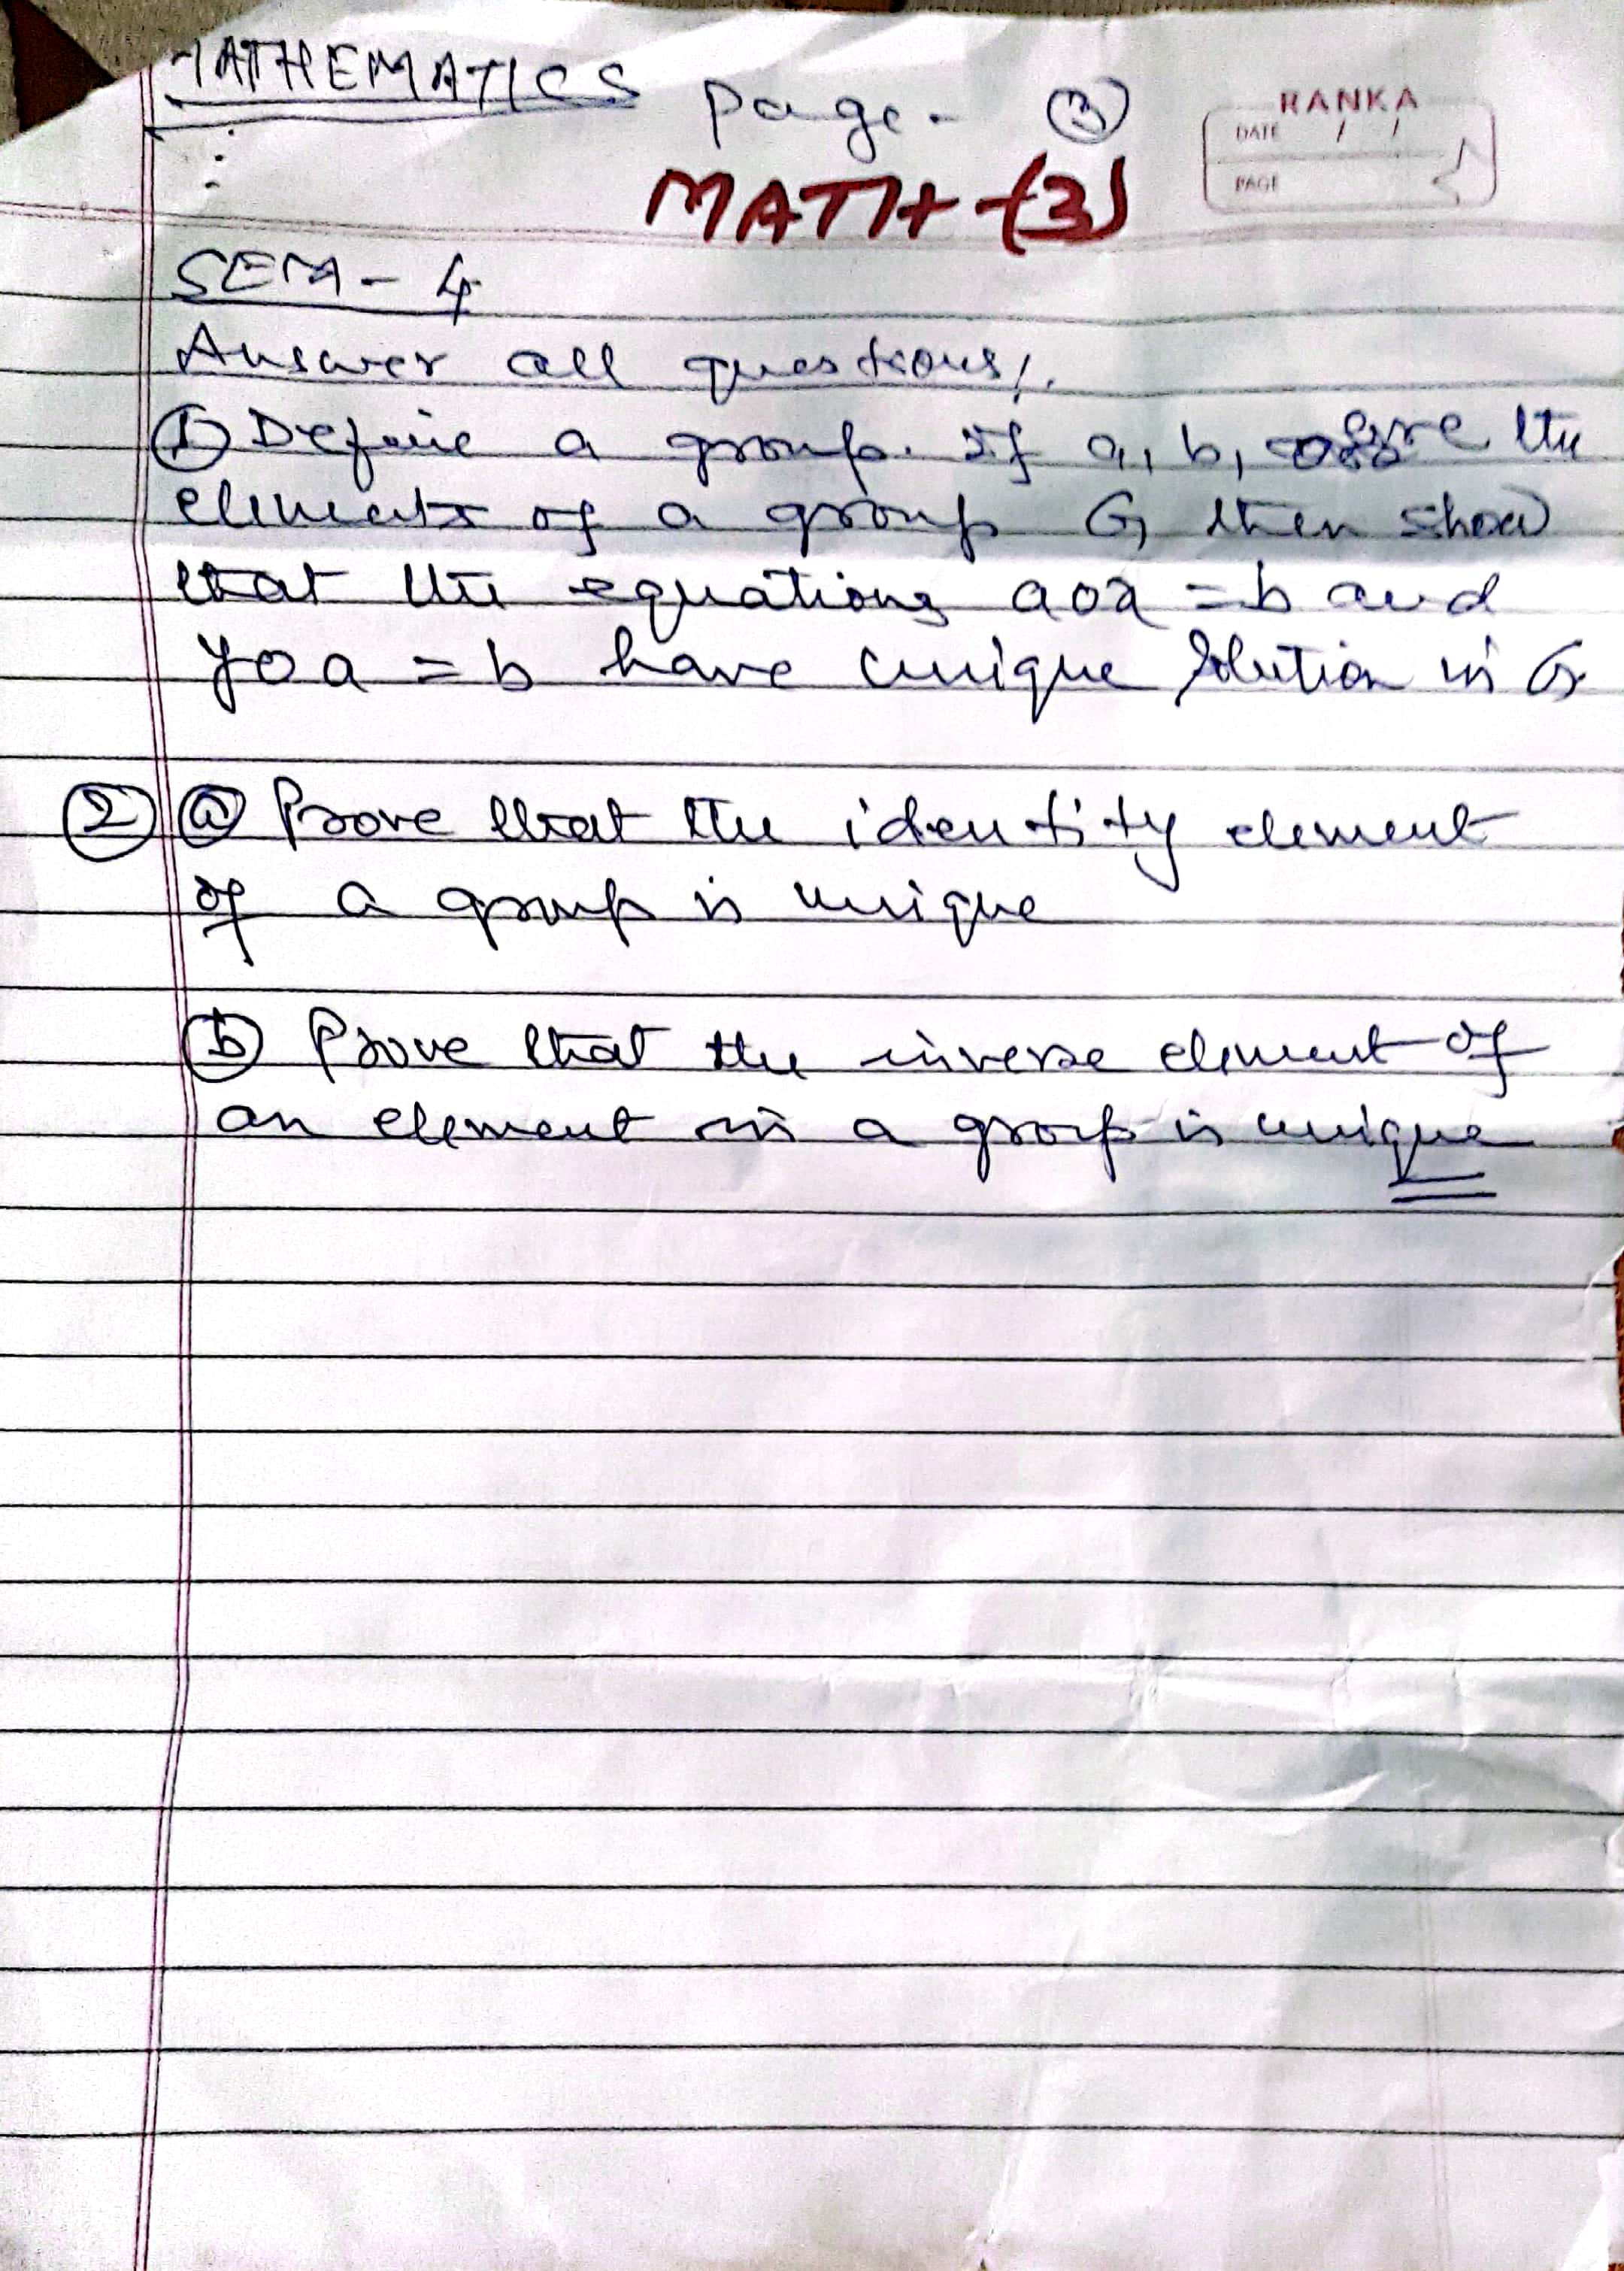 MATHEMATICS page. ③
RANKA
DATE / /
PAGE
MATH-(3)
SEM - 4
Answer all questions!.
① Define a group. If a, b, are the
elements of a group G, then show
that the equations aox = b and
yoa = b have unique solution in G.
② ⓐ Prove that the identity element
of a group is unique
ⓑ Prove that the inverse element of
an element in a group is unique